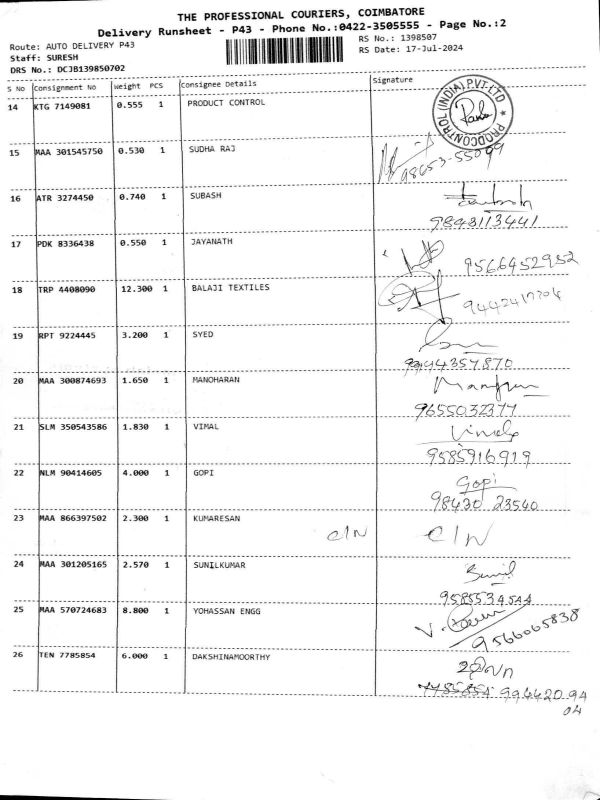 THE PROFESSIONAL COURIERS, COIMBATORE
Delivery Runsheet - P43 - Phone No.:0422-3505555 - Page No.:2
Route: AUTO DELIVERY P43
RS No.: 1398507
Staff: SURESH
RS Date: 17-Jul-2024
DRS No.: DCJB139850702
S No Consignment No Weight PCS Consignee Details Signature
14 KTG 7149081 0.555 1 PRODUCT CONTROL
PRODCONTROL (INDIA) PVT. LTD
15 MAA 301545750 0.530 1 SUDHA RAJ
98653-55099
16 ATR 3274450 0.740 1 SUBASH
9843113441
17 PDK 8336438 0.550 1 JAYANATH
9566452952
18 TRP 4408090 12.300 1 BALAJI TEXTILES
19 RPT 9224445 3.200 1 SYED
9944357870
20 MAA 300874693 1.650 1 MANOHARAN
9655032377
21 SLM 350543586 1.830 1 VIMAL
9585916919
22 NLM 90414605 4.000 1 GOPI Gopi
98430 23540
23 MAA 866397502 2.300 1 KUMARESAN C/N C/N
24 MAA 301205165 2.570 1 SUNILKUMAR Sunil
9585534544
25 MAA 570724683 8.800 1 YOHASSAN ENGG
9566065838
26 TEN 7785854 6.000 1 DAKSHINAMOORTHY
7785854 994420 94
04